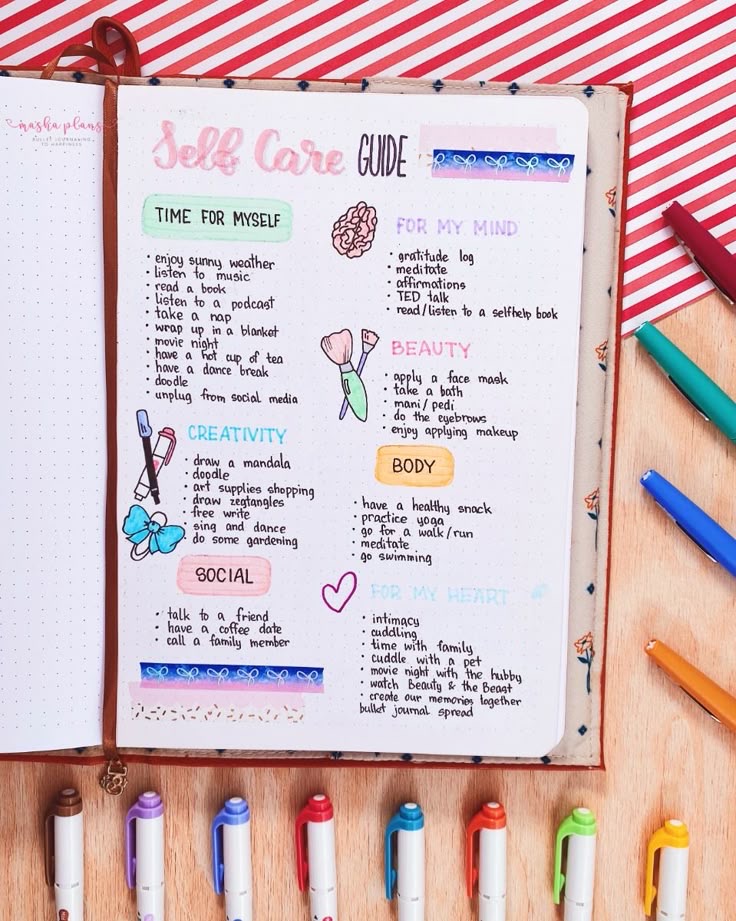 masha plans
BULLET JOURNALING
TO HAPPINESS
Self Care GUIDE
TIME FOR MYSELF
• enjoy sunny weather
• listen to music
• read a book
• listen to a podcast
• take a nap
• wrap up in a blanket
• movie night
• have a hot cup of tea
• have a dance break
• doodle
• unplug from social media
CREATIVITY
• draw a mandala
• doodle
• art supplies shopping
• draw zegtangles
• free write
• sing and dance
• do some gardening
SOCIAL
• talk to a friend
• have a coffee date
• call a family member
FOR MY MIND
• gratitude log
• meditate
• affirmations
• TED talk
• read/listen to a selfhelp book
BEAUTY
• apply a face mask
• take a bath
• mani/pedi
• do the eyebrows
• enjoy applying makeup
BODY
• have a healthy snack
• practice yoga
• go for a walk/run
• meditate
• go swimming
FOR MY HEART
• intimacy
• cuddling
• time with family
• cuddle with a pet
• movie night with the hubby
• watch Beauty & the Beast
• create our memories together
bullet journal spread